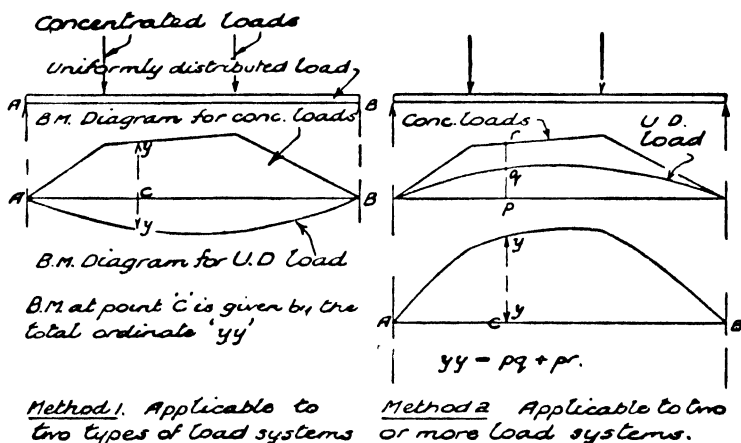 Concentrated loads
Uniformly distributed load
A
B
B.M. Diagram for conc. loads
y
A
C
B
y
B.M. Diagram for U.D load
B.M. at point 'C' is given by the
total ordinate 'yy'
Method 1. Applicable to
two types of load systems
Conc. loads
r
U D.
load
q
p
y
y
A
C
B
yy = pq + pr.
Method 2 Applicable to two
or more load systems.